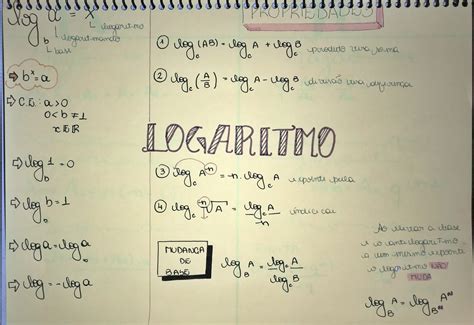 log_b a = x
logaritmo
logaritmando
base
⇒ b^x = a
⇒ C.E.: a>0
0 < b ≠ 1
x ∈ ℝ
⇒ log_b 1 = 0
⇒ log_b b = 1
⇒ log a = log
⇒ log = - log a
PROPRIEDADES
① log_c (AB) = log_c A + log_c B produto vira soma
② log_c (A/B) = log_c A - log_c B divisão vira diferença
LOGARITMO
③ log_c A^n = n. log_c A
④ log_c ⁿ√A = log_c A / n
MUDANÇA
DE
BASE
log_B A = log_c A / log_c B
Ao a base
e o antilogaritmo
a um mesmo
o logaritmo NÃO
MUDA
log_B A = log_{B^m} A^m